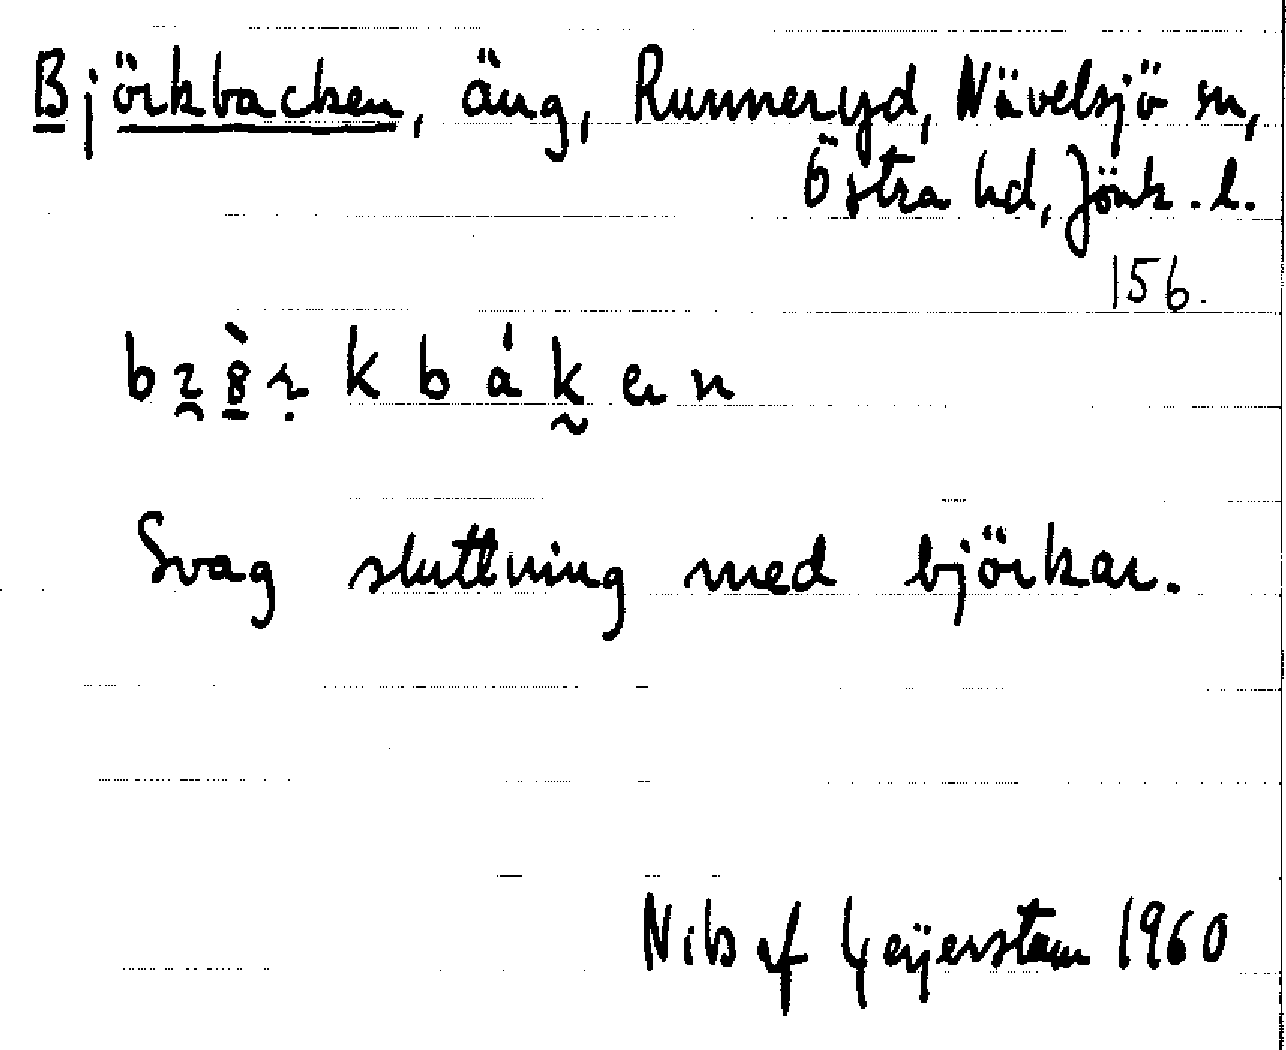 Björkbacken, äng, Runneryd, Nävelsjö sn,
Östra hd, Jönk. l.
156.
Svag sluttning med björkar.
Nils af Geijerstam 1960